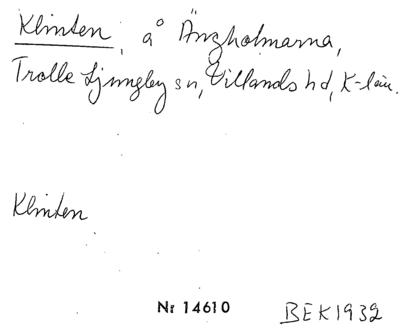 Klinten, å Ängholmarna,
Trolle Ljungby sn, Villands hd, K-län.
Klinten
Nr 14610
BEK1932